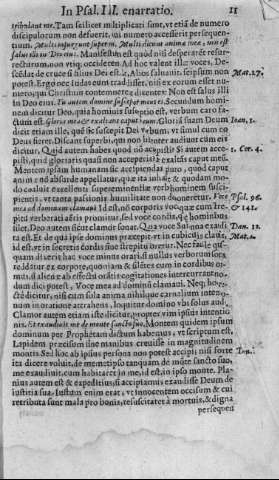 In Psal. III. enarratio. 11
tribulant me. Tam scilicet multiplicati sunt, vt etiã de numero
discipulorum non defuerit, qui numero accesserit persequen-
tium. Multi insurgunt super me. Multi dicunt animæ meæ, non est
salus illi in Deo eius. Manifestum est quod nisi desperarẽt resur-
recturum, non vtiq; occiderẽt. Ad hoc valent illæ voces, De-
scẽdat de cruce si filius Dei est, & Alios saluauit, seipsum non
potest. Ergo nec Iudas eum tradidisset, nisi ex eorum esset nu-
mero, qui Christum contemnere dicentes: Non est salus illi
in Deo eius. Tu autem domine susceptor meus es. Secundum homi-
nem dicitur Deo, quia hominis susceptio est, verbum caro fa-
ctum est. Gloria mea & exaltans caput meum. Gloriã suam Deum
dicit etiam ille, quẽ sic suscepit Dei verbum, vt simul cum eo
Deus fieret. Discant superbi, qui non libenter audiunt cum eis
dicitur, Quid autem habes quod nõ accepisti? Si autem acce-
pisti, quid gloriaris quasi non acceperis? & exaltans caput meũ.
Mentem ipsam humanam sic accipiendam puto, quod caput
animæ nõ absurde appellatur, quæ ita inhæsit & quodam mo-
do coaluit excellenti supereminentiæ verbi hominem susci-
pientis, vt tanta passionis humilitate non deponeretur. Voce
mea ad dominum clamaui. Id est, nõ corporis voce, quæ cum stre-
pitu verberati aëris promitur, sed voce cordis, quæ hominibus
silet, Deo autem sicut clamor sonat. Qua voce Susanna exaudi-
ta est. Et de qua ipse dominus præcepit vt in cubiculis clausis,
id est, in secretis cordis sine strepitu oretur. Nec facile quis-
quam dixerit, hac voce minus orari, si nullus verborum sonus
reddatur ex corpore, quoniam & silẽtes cum in cordibus ora-
mus, si aliena ab affectu orãtis cogitationes intercurrant, non-
dum dici potest, Voce mea ad dominũ clamaui. Neq; hoc re-
ctè dicitur, nisi cum sola anima nihil quæ carnalium intentio-
num in oratione attrahens, loquitur domino vbi solus audit.
Clamor autem etiam iste dicitur, propter vim ipsius intentio-
nis. Et exaudiuit me de monte sancto suo. Montem quidem ipsum
dominum per Prophetam dictum habemus, vt scriptum est,
Lapidem præcisum sine manibus creuisse in magnitudinem
montis. Sed hoc ab ipsius persona non potest accipi, nisi forte
ita dicere voluit, de memetipso tanquam de mõte sancto suo,
me exaudiuit, cum habitaret in me, id est, in ipso monte. Pla-
nius autem est & expeditius, si accipiamus exaudisse Deum de
iustitia sua. Iustum enim erat, vt innocentem occisum & cui
retributa sunt mala pro bonis, resuscitaret à mortuis, & digna
persequen
Mat. 27.
Ioan. 1.
1. Cor. 4.
Psal. 76.
& 141.
Dan. 13.
Mat. 6.